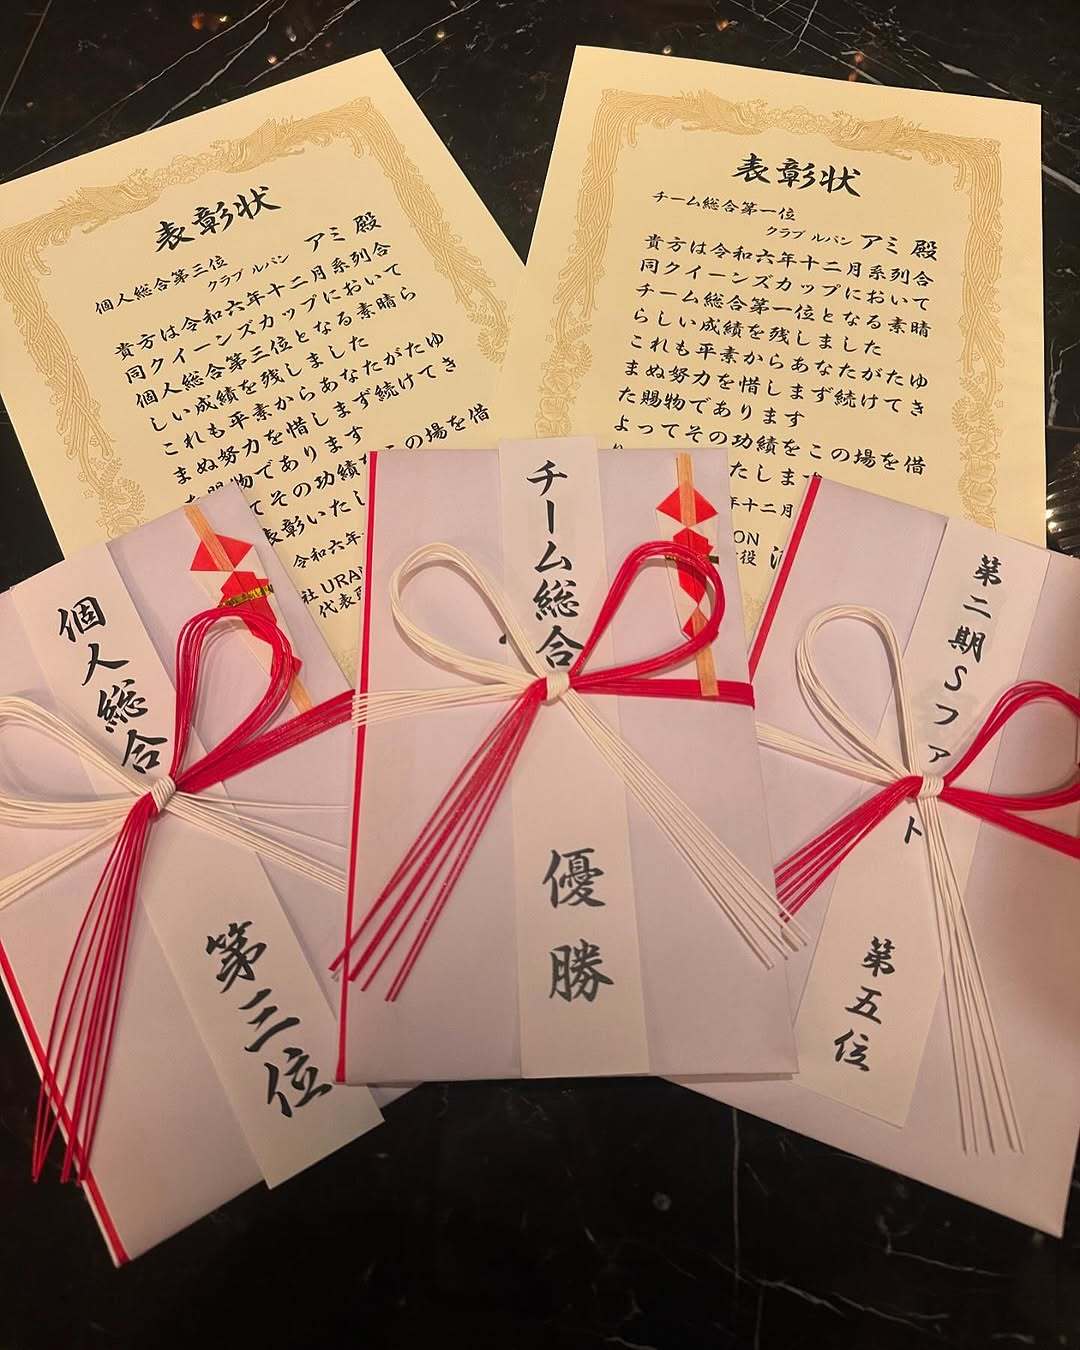 表彰状
個人総合第三位
クラブ ルパン アミ 殿
貴方は令和六年十二月系列合
同クイーンズカップにおいて
個人総合第三位となる素晴ら
しい成績を残しました
これも平素からあなたがたゆ
まぬ努力を惜しまず続けてき
賜物であります
てその功績を この場を借
表彰いたし
令和六年
社URA
代表
表彰状
チーム総合第一位
クラブ ルパン アミ 殿
貴方は令和六年十二月系列合
同クイーンズカップにおいて
チーム総合第一位となる素晴
らしい成績を残しました
これも平素からあなたがたゆ
まぬ努力を惜しまず続けてき
た賜物であります
よってその功績を この場を借
たします
年十二月
ON
役
個人総合
第三位
チーム総合
優勝
第二期Sファ
ト
第五位